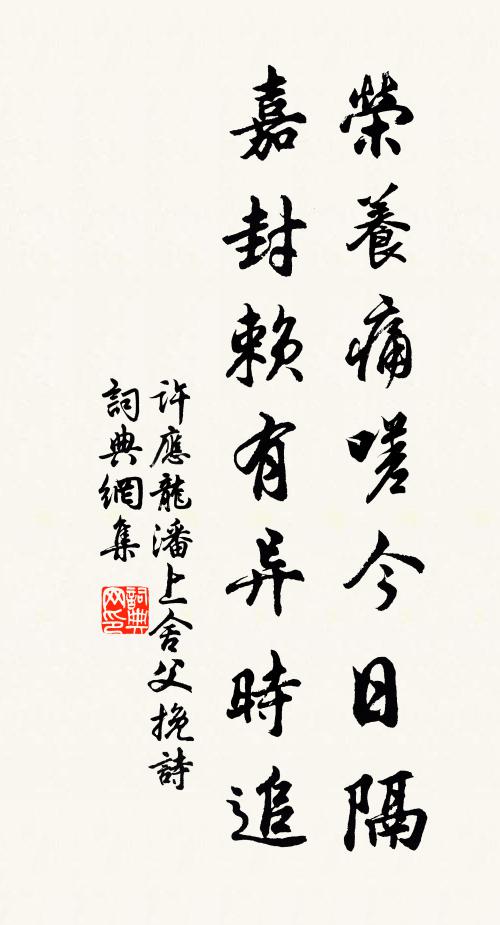 榮養痛嗟今日隔
嘉封賴有异時追
許應龍潘上舍父挽詩
詞典網集
詞典
网印